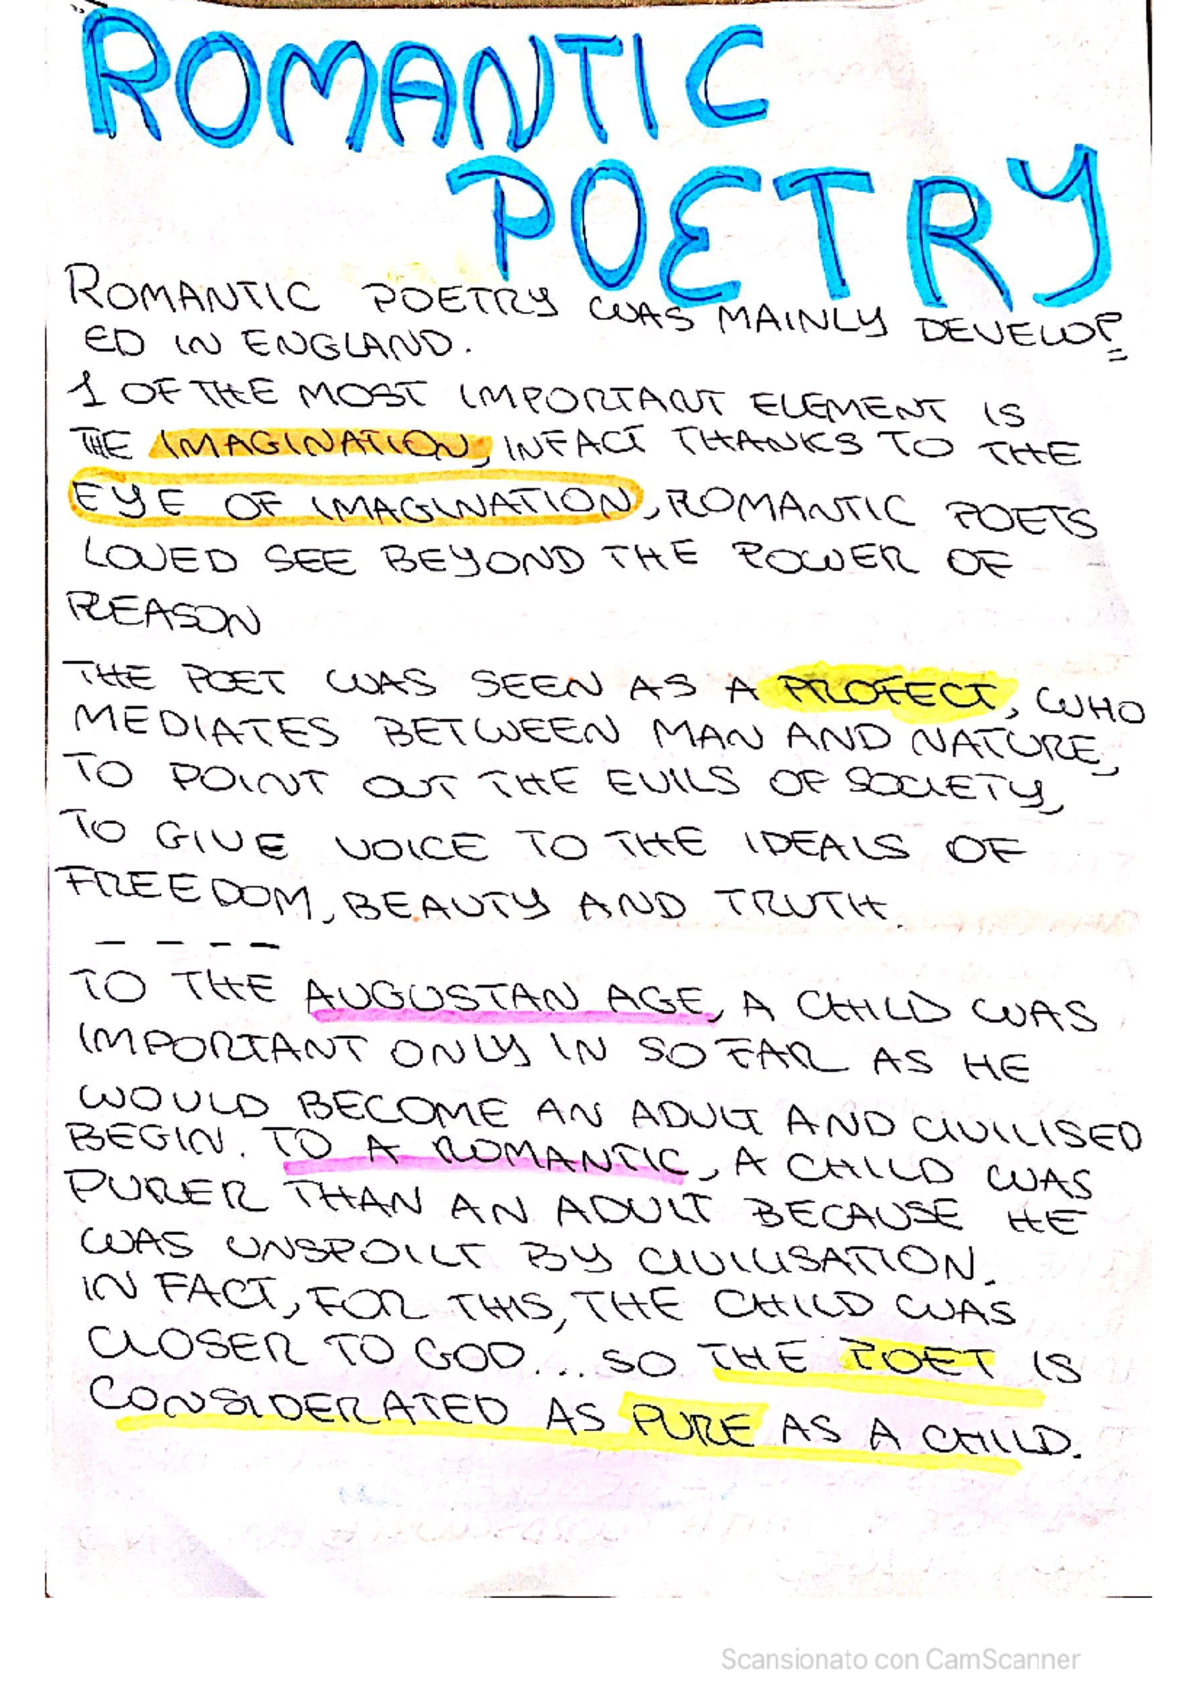 ROMANTIC
POETRY
ROMANTIC POETRY WAS MAINLY DEVELOP
ED IN ENGLAND.
1 OF THE MOST IMPORTANT ELEMENT IS
THE IMAGINATION, INFACT THANKS TO THE
EYE OF IMAGINATION, ROMANTIC POETS
LOVED SEE BEYOND THE POWER OF
REASON
THE POET WAS SEEN AS A PROFECT, WHO
MEDIATES BETWEEN MAN AND NATURE,
TO POINT OUT THE EVILS OF SOCIETY,
TO GIVE VOICE TO THE IDEALS OF
FREEDOM, BEAUTY AND TRUTH.
- - - -
TO THE AUGUSTAN AGE, A CHILD WAS
IMPORTANT ONLY IN SO FAR AS HE
WOULD BECOME AN ADULT AND CIVILISED
BEGIN. TO A ROMANTIC, A CHILD WAS
PURER THAN AN ADULT BECAUSE HE
WAS UNSPOILT BY CIVILISATION.
IN FACT, FOR THIS, THE CHILD WAS
CLOSER TO GOD... SO THE POET IS
CONSIDERATED AS PURE AS A CHILD.
Scansionato con CamScanner